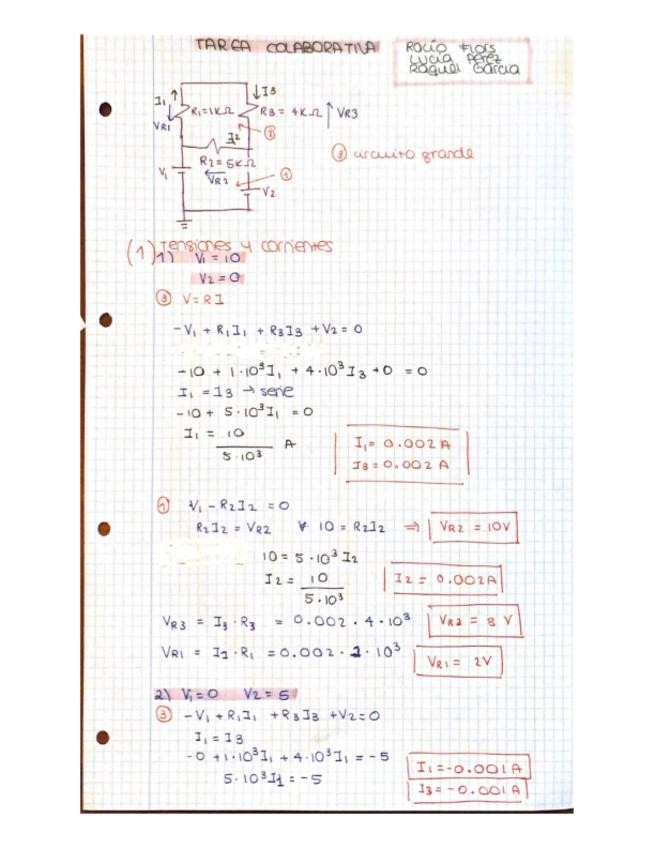 TAREA COLABORATIVA
Rocío Flors
Lucía Pérez
Raquel García
I1 R1=1KΩ I3 R3=4KΩ VR3
VR1 I2 ②
③ circuito grande
R2=5KΩ
V1 VR2 ① V2
(1) Tensiones y corrientes
1) V1 = 10
V2 = 0
③ V=RI
-V1 + R1I1 + R3I3 + V2 = 0
-10 + 1·10³I1 + 4·10³I3 + 0 = 0
I1 = I3 → serie
-10 + 5·10³I1 = 0
I1 = 10 / 5·10³ A
I1 = 0.002 A
I3 = 0.002 A
① V1 - R2I2 = 0
R2I2 = VR2 ∀ 10 = R2I2 ⇒ VR2 = 10V
10 = 5·10³ I2
I2 = 10 / 5·10³
I2 = 0.002A
VR3 = I3·R3 = 0.002·4·10³ VR3 = 8 V
VR1 = I1·R1 = 0.002·1·10³ VR1 = 2V
2) V1=0 V2=5
③ -V1 + R1I1 + R3I3 + V2=0
I1 = I3
-0 + 1·10³I1 + 4·10³I1 = -5
5·10³I1 = -5
I1 = -0.001A
I3 = -0.001A